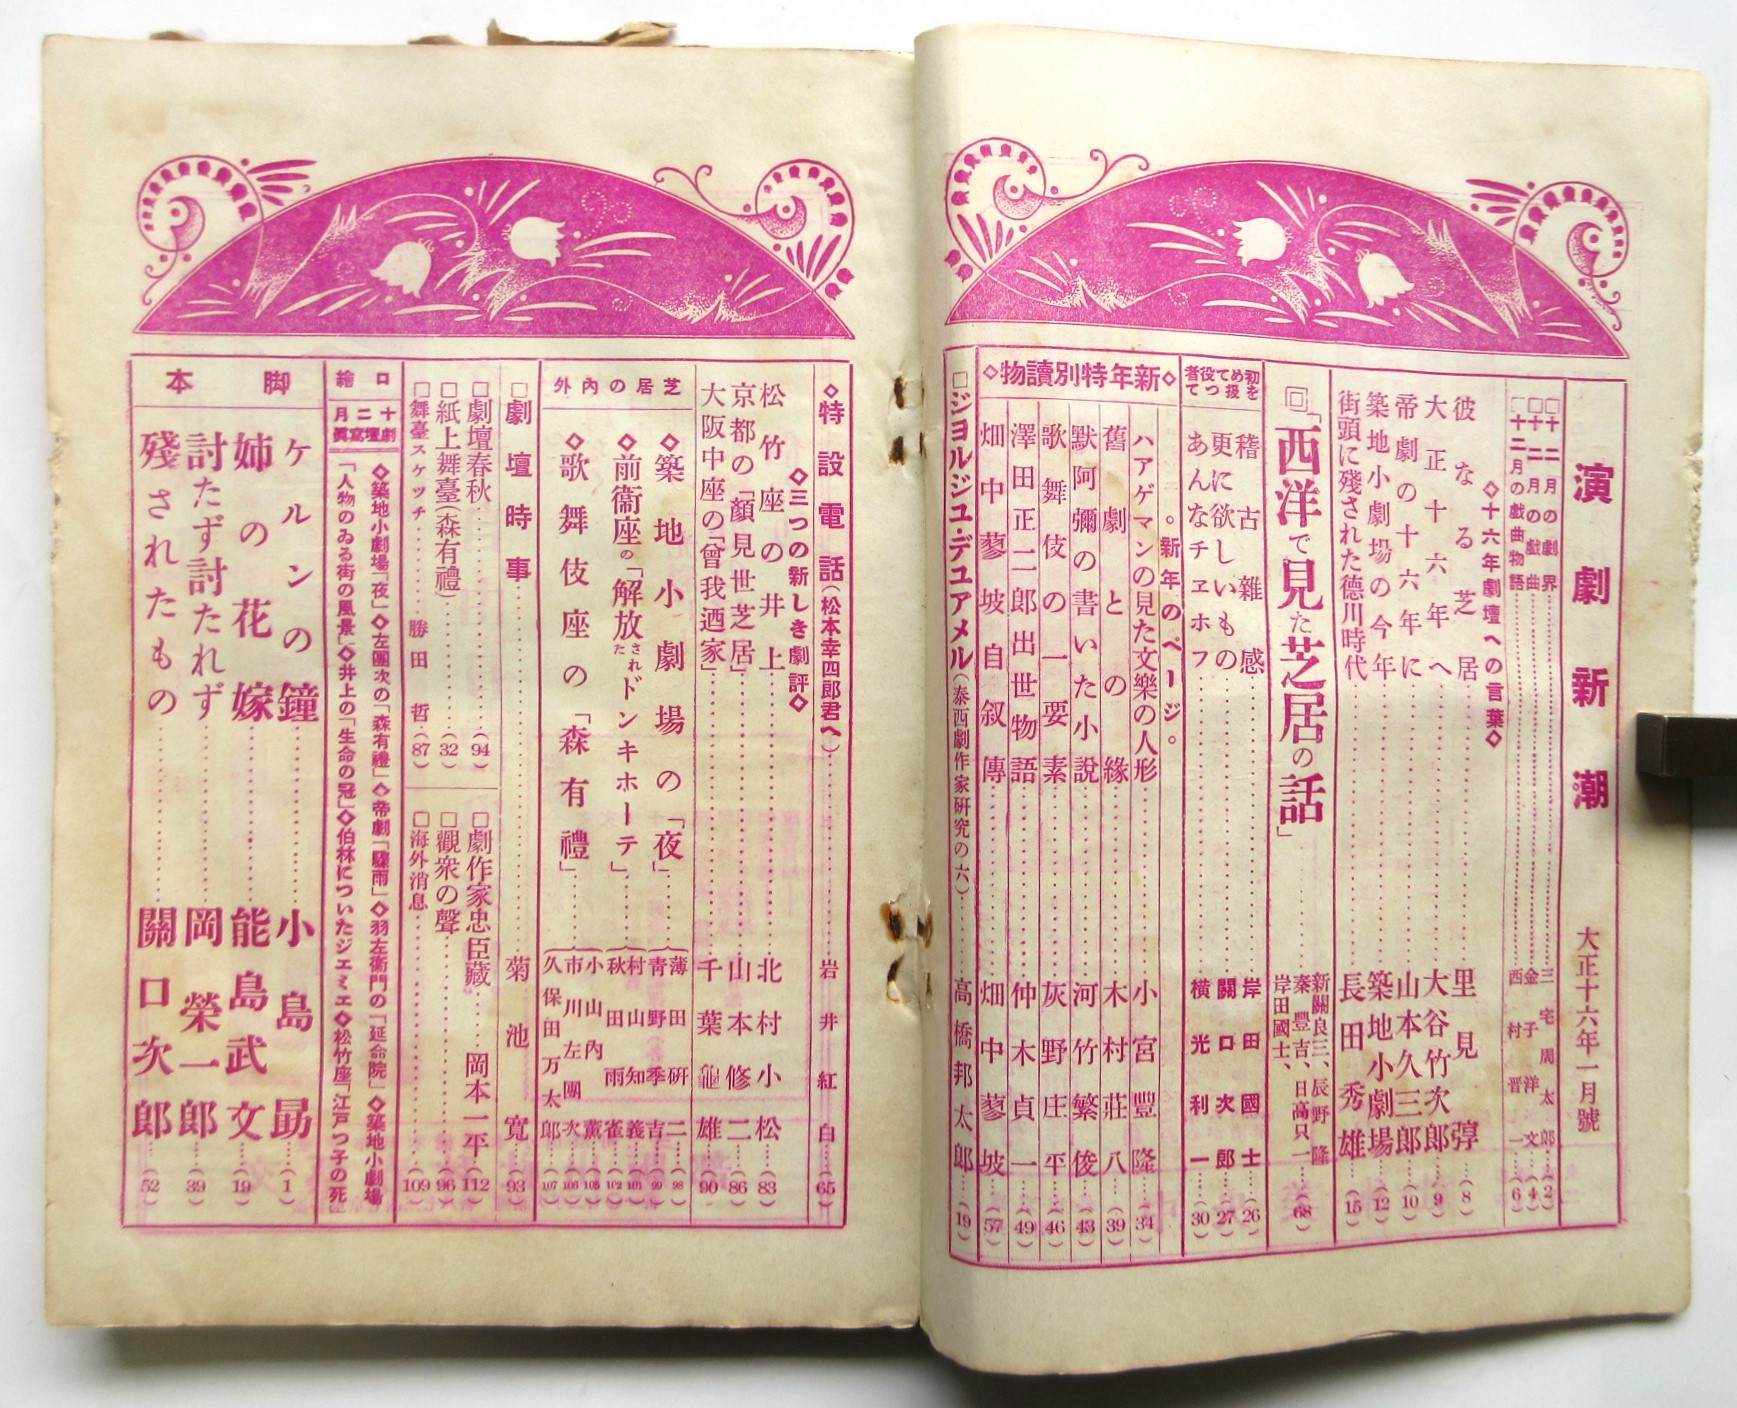 演劇新潮
大正十六年一月號
□十二月の劇界……三宅周太郎…(2)
□十二月の戯曲……金子洋文…(4)
□十二月の戯曲物語……西村晋一…(6)
◇十六年劇壇への言葉◇
彼なる芝居……里見弴…(8)
大正十六年へ……大谷竹次郎…(9)
帝劇の十六年に……山本久三郎…(10)
築地小劇場の今年……築地小劇場…(12)
街頭に殘された德川時代……長田秀雄…(15)
回「西洋で見た芝居の話」
新關良三、辰野隆
秦豐吉、日高只一…(68)
岸田國士、
初めて役者を扱つて
稽古雜感……岸田國士…(26)
更に欲しいもの……關口次郎…(27)
あんなチヱホフ……橫光利一…(30)
◇新年特別讀物◇
。新年のページ。
ハアゲマンの見た文樂の人形……小宮豐隆…(34)
舊劇との緣……木村莊八…(39)
默阿彌の書いた小說……河竹繁俊…(43)
歌舞伎の一要素……灰野庄平…(46)
澤田正二郎出世物語……仲木貞一…(49)
畑中蓼坡自叙傳……畑中蓼坡…(57)
□ジヨルジユ・デユアメル(泰西劇作家硏究の六)……高橋邦太郎…(19)
◇特設電話(松本幸四郎君へ)……岩井紅白…(65)
◇三つの新しき劇評◇
松竹座の井上……北村小松…(83)
京都の「顏見世芝居」……山本修二…(86)
大阪中座の「曾我廼家」……千葉龜雄…(90)
芝居の內外
◇築地小劇場の「夜」……
薄田硏二…(98)
靑野季吉…(99)
◇前衞座の「解放されたドンキホーテ」
村山知義…(101)
秋田雨雀…(102)
◇歌舞伎座の「森有禮」
小山內薰…(105)
市川左團次…(106)
久保田万太郎…(107)
□劇壇時事……菊池寬…(93)
□劇壇春秋……(94)
□紙上舞臺(森有禮)……(32)
□舞臺スケツチ……勝田哲…(87)
□劇作家忠臣藏……岡本一平…(112)
□觀衆の聲……(96)
□海外消息……(109)
口繪
十二月劇壇寫眞
◇築地小劇場「夜」◇左團次の「森有禮」◇帝劇「驟雨」◇羽左衞門の「延命院」◇築地小劇場
「人物のゐる街の風景」◇井上の「生命の冠」◇伯林についたジエミエ◇松竹座「江戸つ子の死」
脚本
ケルンの鐘……小島勗…(1)
姉の花嫁……能島武文…(19)
討たず討たれず……岡榮一郎…(39)
殘されたもの……關口次郎…(52)